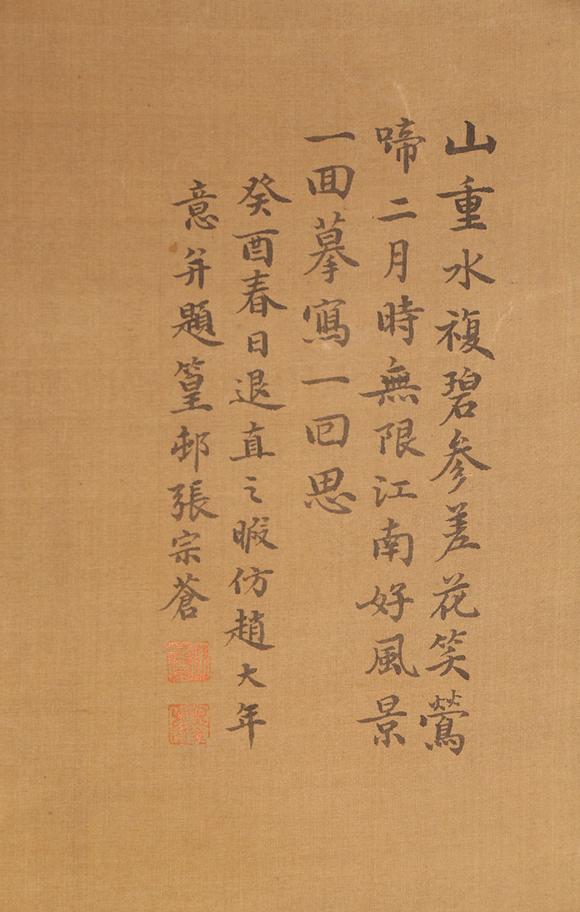 山重水複碧參差花笑鶯
啼二月時無限江南好風景
一回摹寫一回思
癸酉春日退直之暇仿趙大年
意并題篁邨張宗蒼